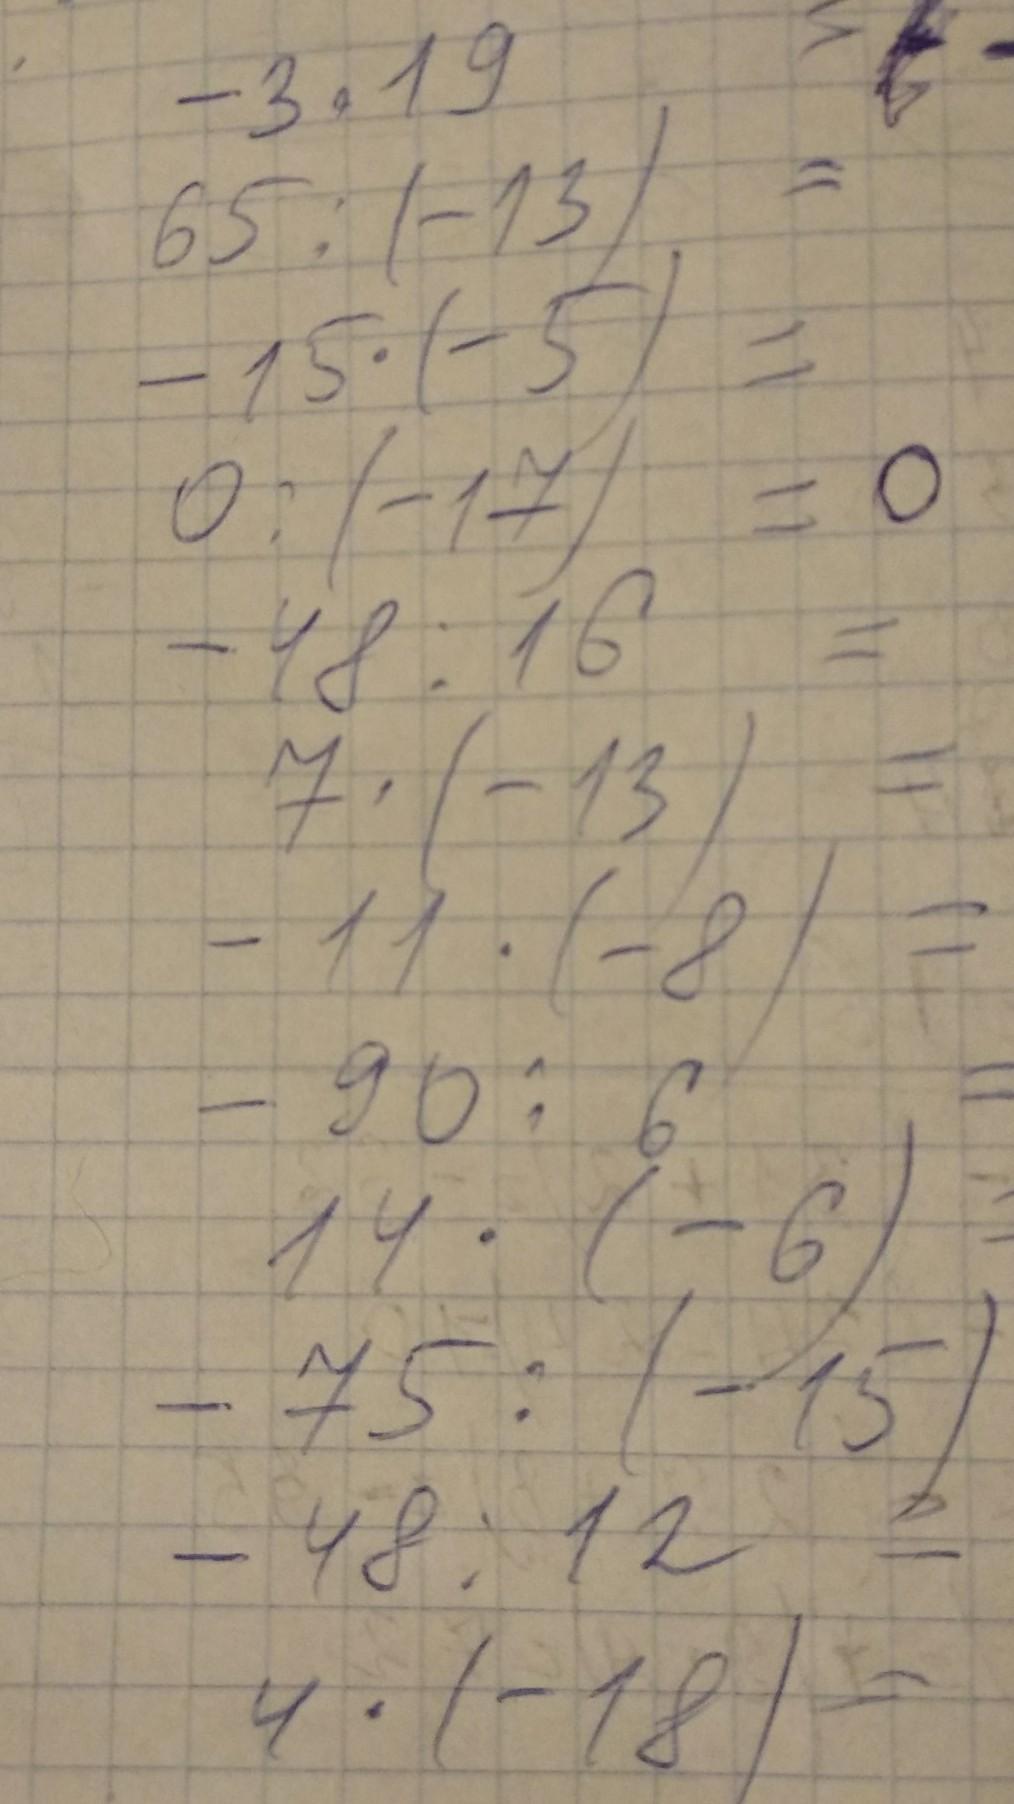 -3·19 =
65:(-13) =
-15·(-5) =
0:(-17) = 0
-48:16 =
7·(-13) =
-11·(-8) =
-90:6 =
14·(-6) =
-75:(-15)
-48:12 =
4·(-18) =